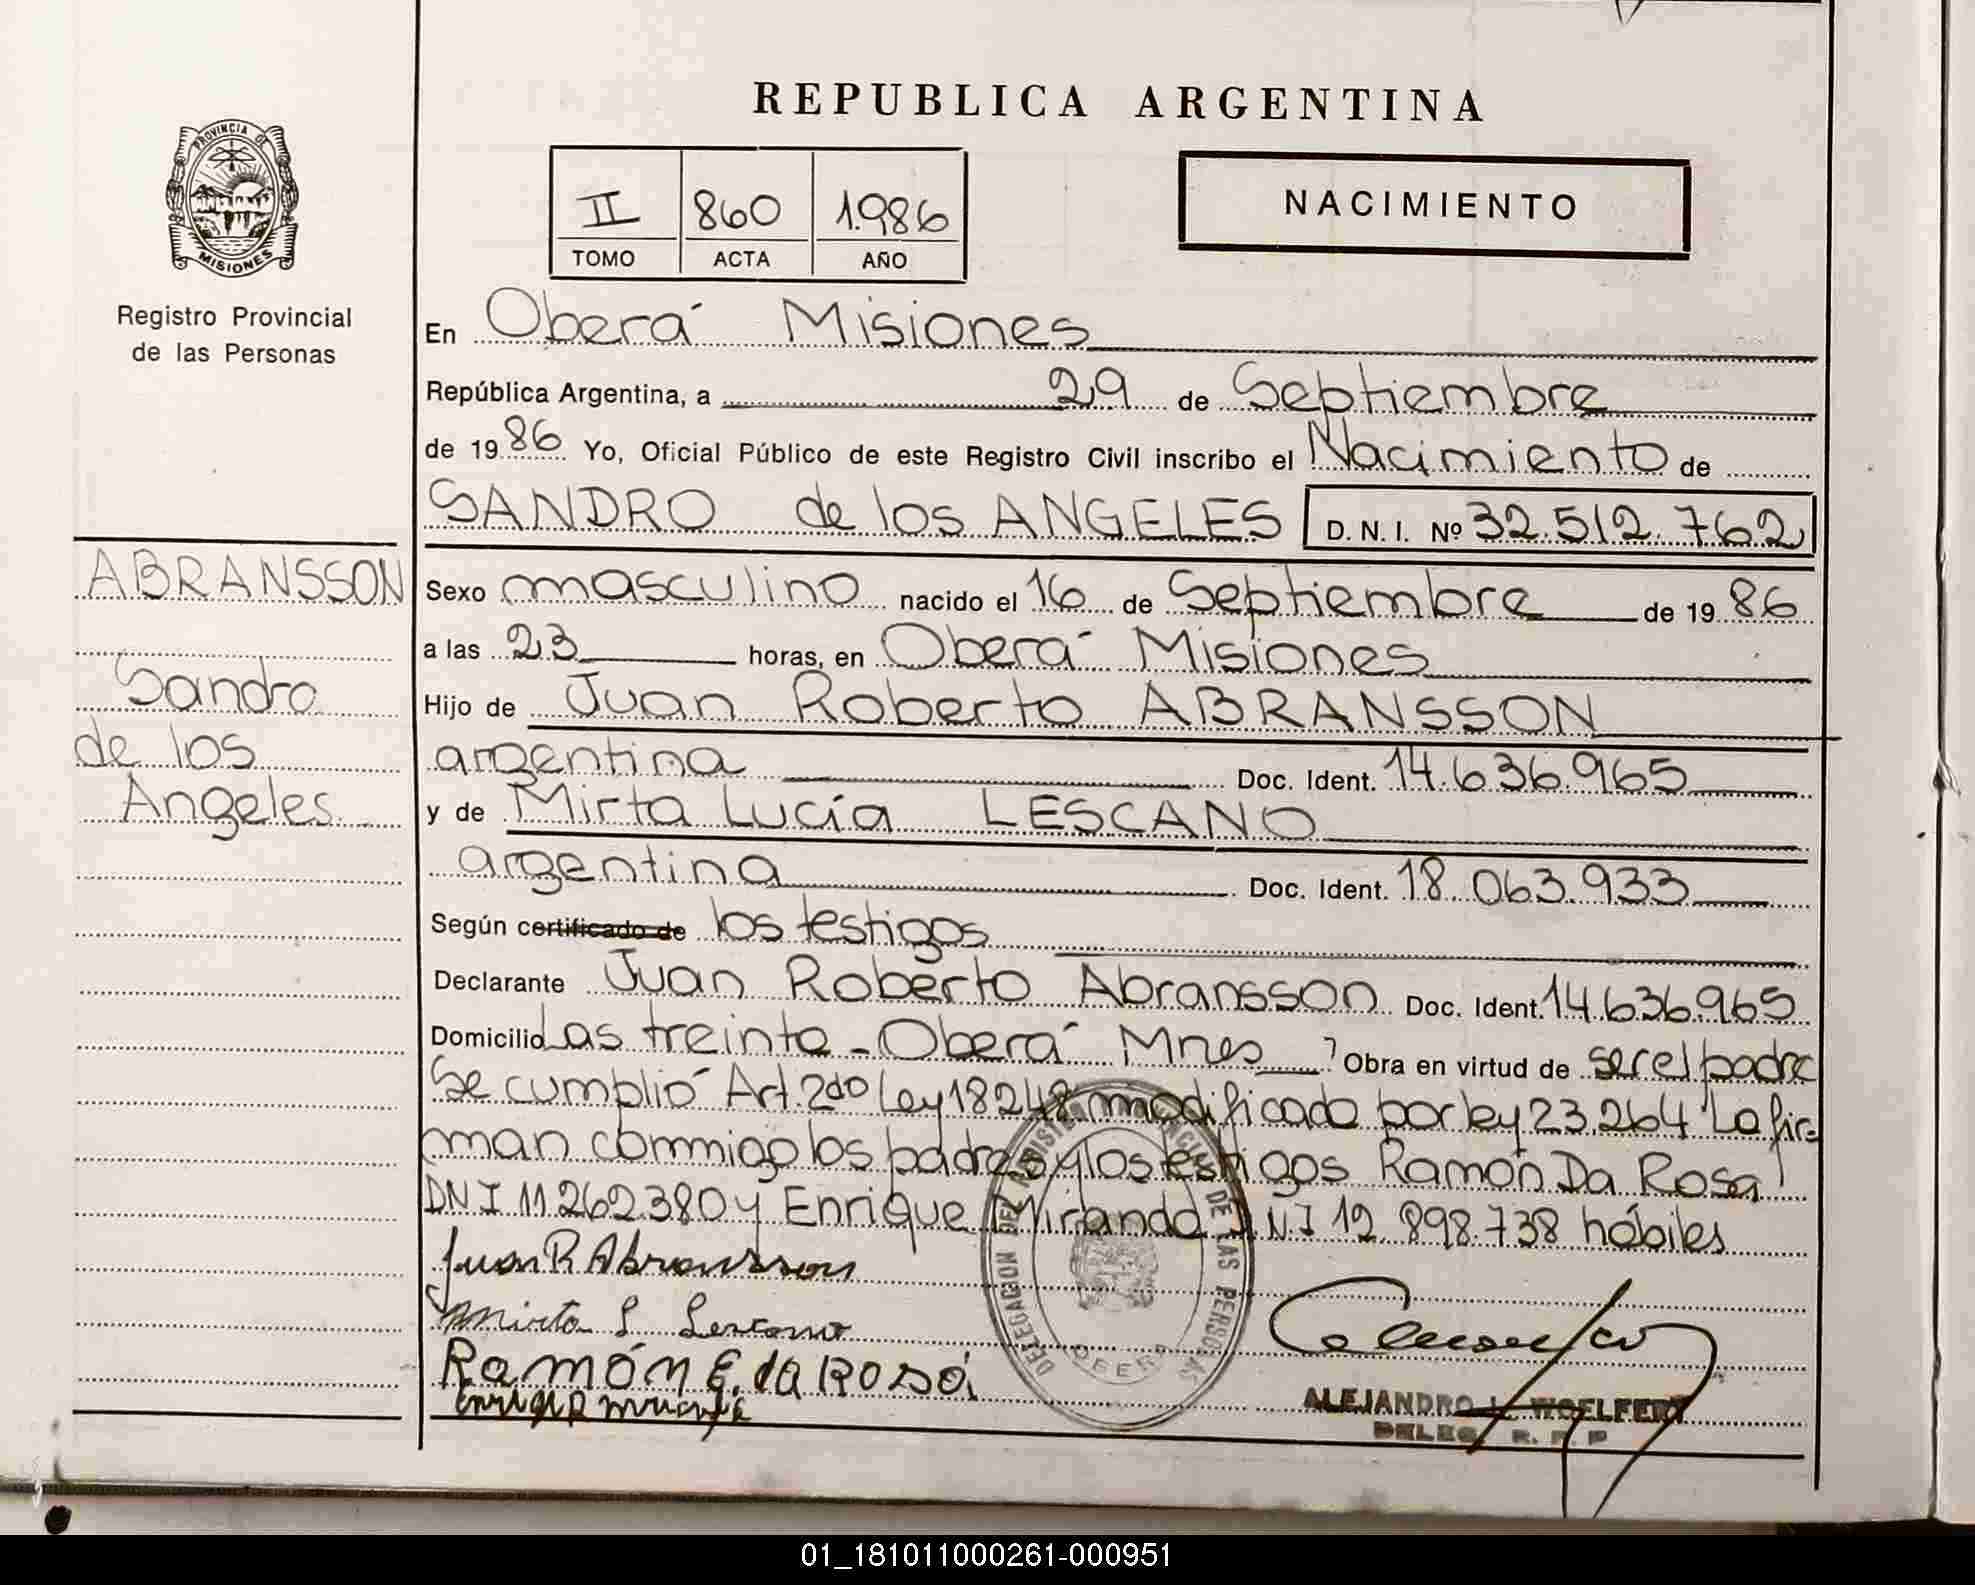 REPUBLICA ARGENTINA
PROVINCIA DE
MISIONES
Registro Provincial
de las Personas
II 860 1.986
TOMO ACTA AÑO
NACIMIENTO
En Oberá Misiones
República Argentina, a 29 de Septiembre
de 1986 Yo, Oficial Público de este Registro Civil inscribo el Nacimiento de
SANDRO de los ANGELES D. N. I. Nº 32.512.762
ABRANSSON
Sandro
de los
Angeles
Sexo masculino nacido el 16 de Septiembre de 1986
a las 23 horas, en Oberá Misiones
Hijo de Juan Roberto ABRANSSON
argentina Doc. Ident. 14.636.965
y de Mirta Lucía LESCANO
argentina Doc. Ident. 18.063.933
Según certificado de los testigos
Declarante Juan Roberto Abransson Doc. Ident. 14.636.965
Domicilio Las treinta - Oberá Mnes Obra en virtud de ser el padre
Se cumplió Art. 2do Ley 18248 modificado por ley 23.264 La fir=
man conmigo los padres y los testigos Ramón Da Rosa
DNI 11.262.380 y Enrique Miranda D.N.I 12.898.738 hábiles
Juan R Abransson
Mirta L Lescano
RAMÓN E. da ROSA
Enrique Miranda
DELEGACION DEL DE LAS PERSONAS
ALEJANDRO L. WOELFERT
DELEG. R. P. P
01_181011000261-000951